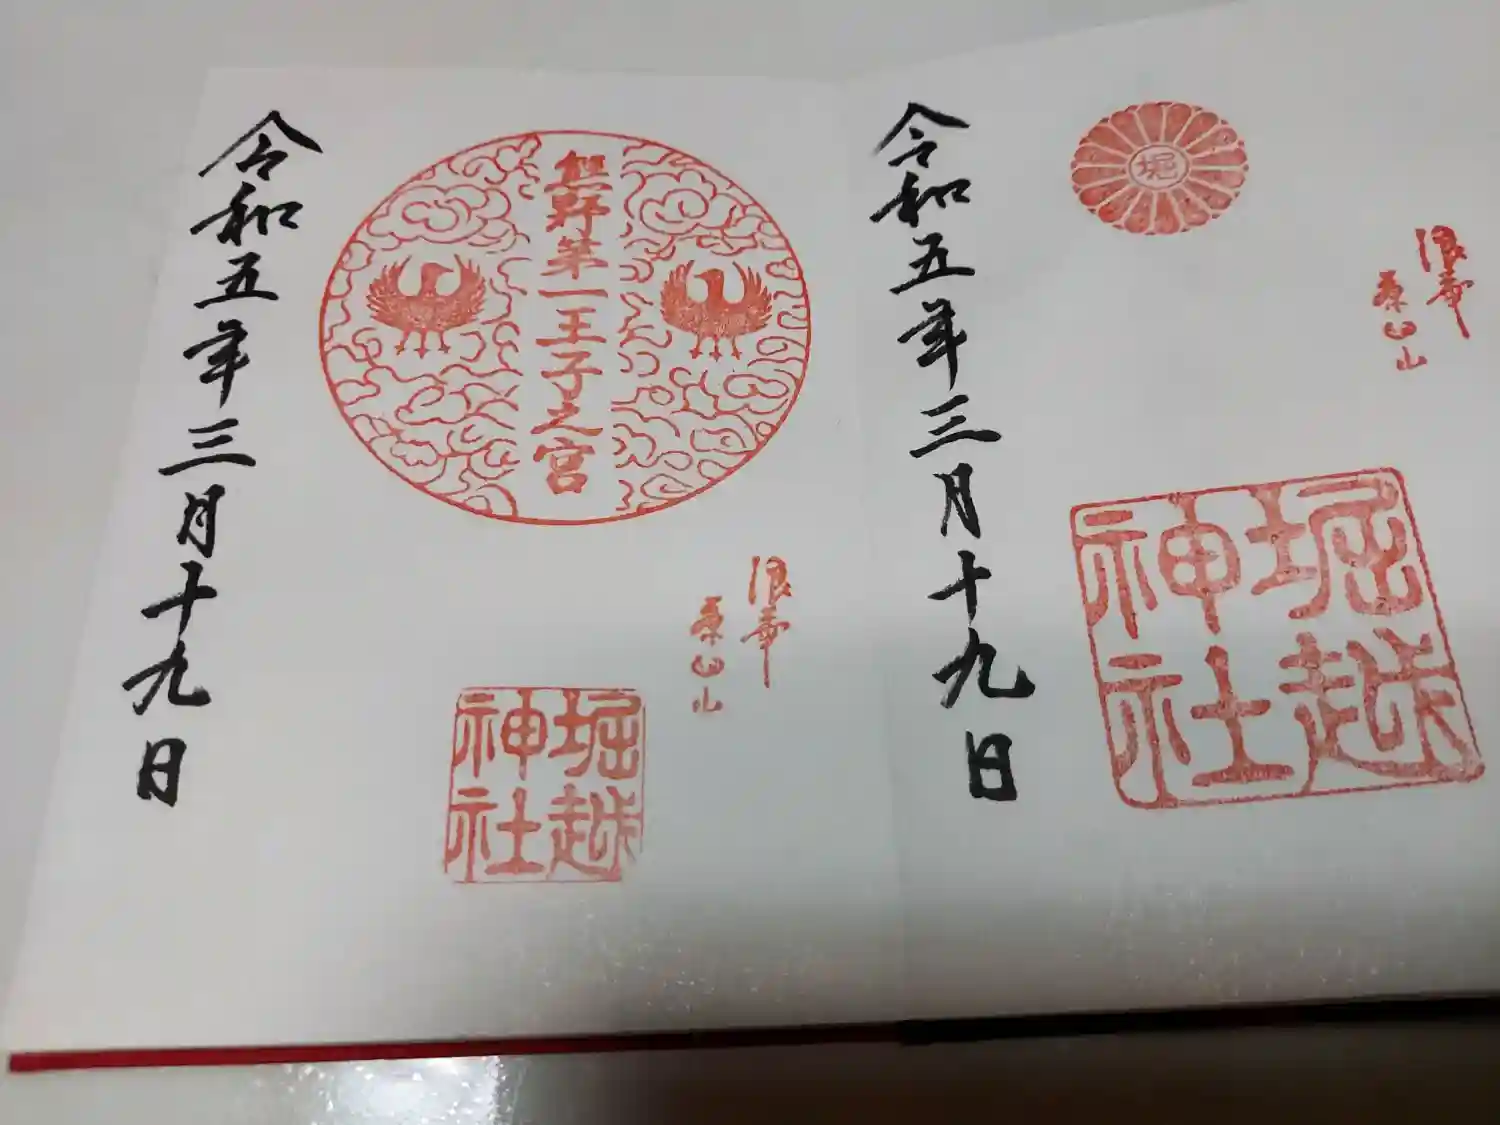 堀
浪華
桑山
堀越
神社
令和五年三月十九日
熊野第一王子之宮
浪華
桑山
堀越
神社
令和五年三月十九日